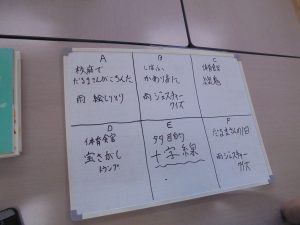 A
校庭で
だるまさんがころんだ
雨 絵しりとり
B
しっぽふみ
雨 ジェスチャー
クイズ
C
体育館
D
体育館
宝さがし
トランプ
E
多目的
十字線
F
だるまさんの1日
雨 ジェスチャー
クイズ